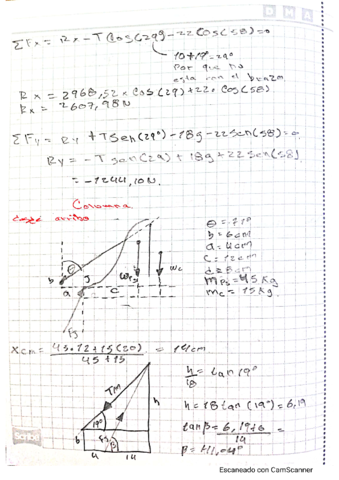 ΣFx = Rx - T Cos(29) - 22 Cos(58) = 0
10+19=29°
Por que no
esta con el brazo
Rx = 2968,52 x Cos(29) + 22. Cos(58)
Rx = 2607,98N
ΣFy = Ry + T Sen(29°) - 18g - 22 sen(58) = 0
Ry = -T sen(29) + 18g + 22 sen(58)
= -1244,10N
Columna
desde arriba
b
θ
g
a
c
Wc
F3
θ = 71°
b = 6cm
a = 4cm
c = 12cm
d = 8cm
mPs = 45 Kg
mc = 15 Kg
Xcm = 45·12+15(20) / 45+15 = 14cm
TM
h
19°
b
β
4
14
h/18 = tan 19°
h = 18 tan (19°) = 6,19
tan β = 6,19+6 / 14 =
β = 41,04°
Scribe
Escaneado con CamScanner